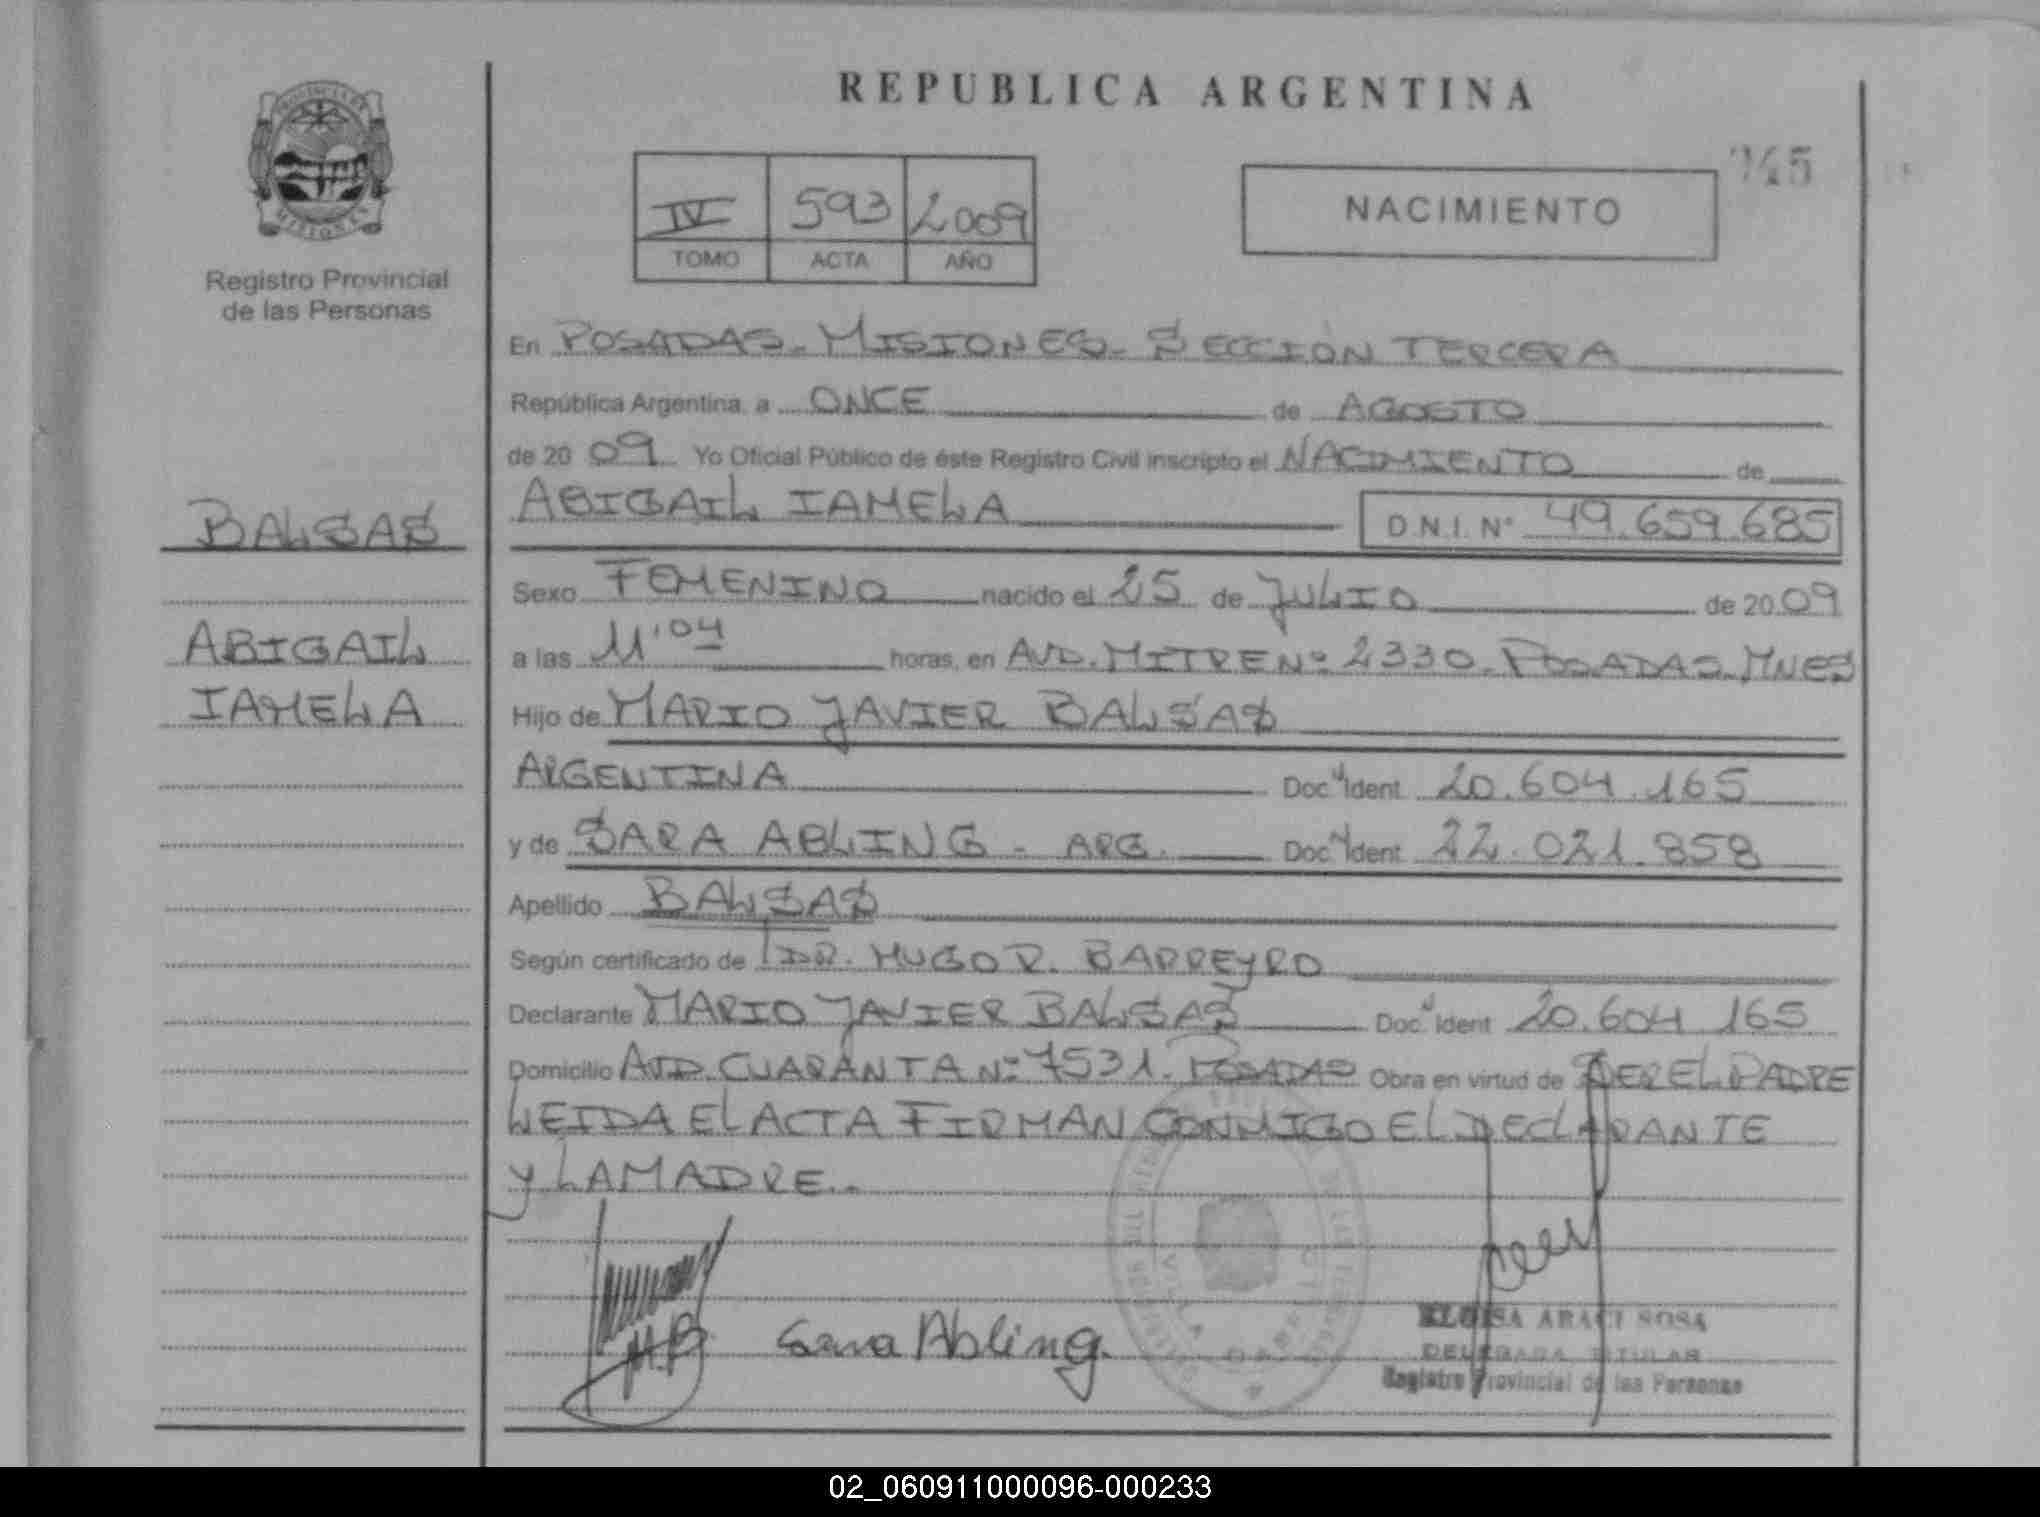 REPUBLICA ARGENTINA
PROVINCIA DE
MISIONES
Registro Provincial
de las Personas
IV 593 2009
TOMO ACTA AÑO
NACIMIENTO
245
En POSADAS-MISIONES-SECCIÓN TERCERA
República Argentina, a ONCE de AGOSTO
de 20 09 Yo Oficial Público de éste Registro Civil inscripto el NACIMIENTO de
BALSAS
ABIGAIL IAMELA D.N.I. N° 49.659.685
Sexo FEMENINO nacido el 25 de JULIO de 20 09
ABIGAIL
a las 11'04 horas, en AVD. MITRE Nº 2330-POSADAS-MNES
IAMELA
Hijo de MARIO JAVIER BALSAS
ARGENTINA Doc. Ident. 20.604.165
y de SARA ABLING - ARG. Doc. Ident. 22.021.858
Apellido BALSAS
Según certificado de DR. HUGO R. BARREYRO
Declarante MARIO JAVIER BALSAS Doc. Ident. 20.604 165
Domicilio AVD. CUARANTA Nº 7531. POSADAS Obra en virtud de SER EL PADRE
LEIDA EL ACTA FIRMAN CONMIGO EL DECLARANTE
y LA MADRE.-
M.B
Sara Abling.
ELOISA ARACI SOSA
DELEGADA TITULAR
Registro Provincial de las Personas
02_060911000096-000233